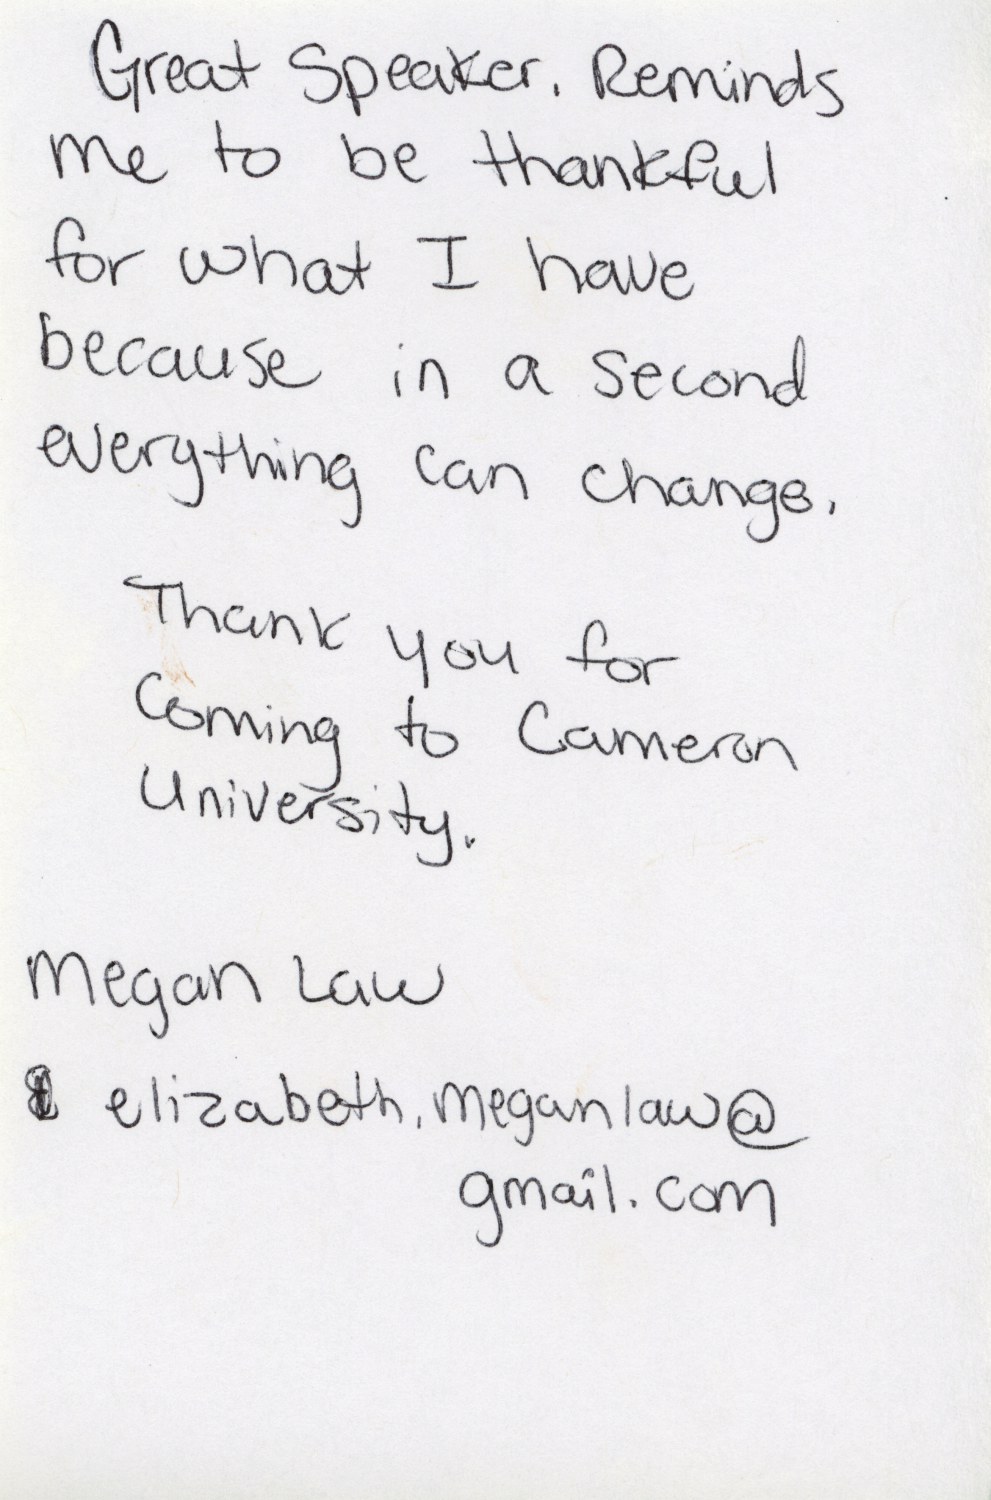 Great Speaker. Reminds
me to be thankful
for what I have
because in a second
everything can change.
Thank you for
Coming to Cameron
University.
Megan Law
elizabeth.meganlaw@
gmail.com